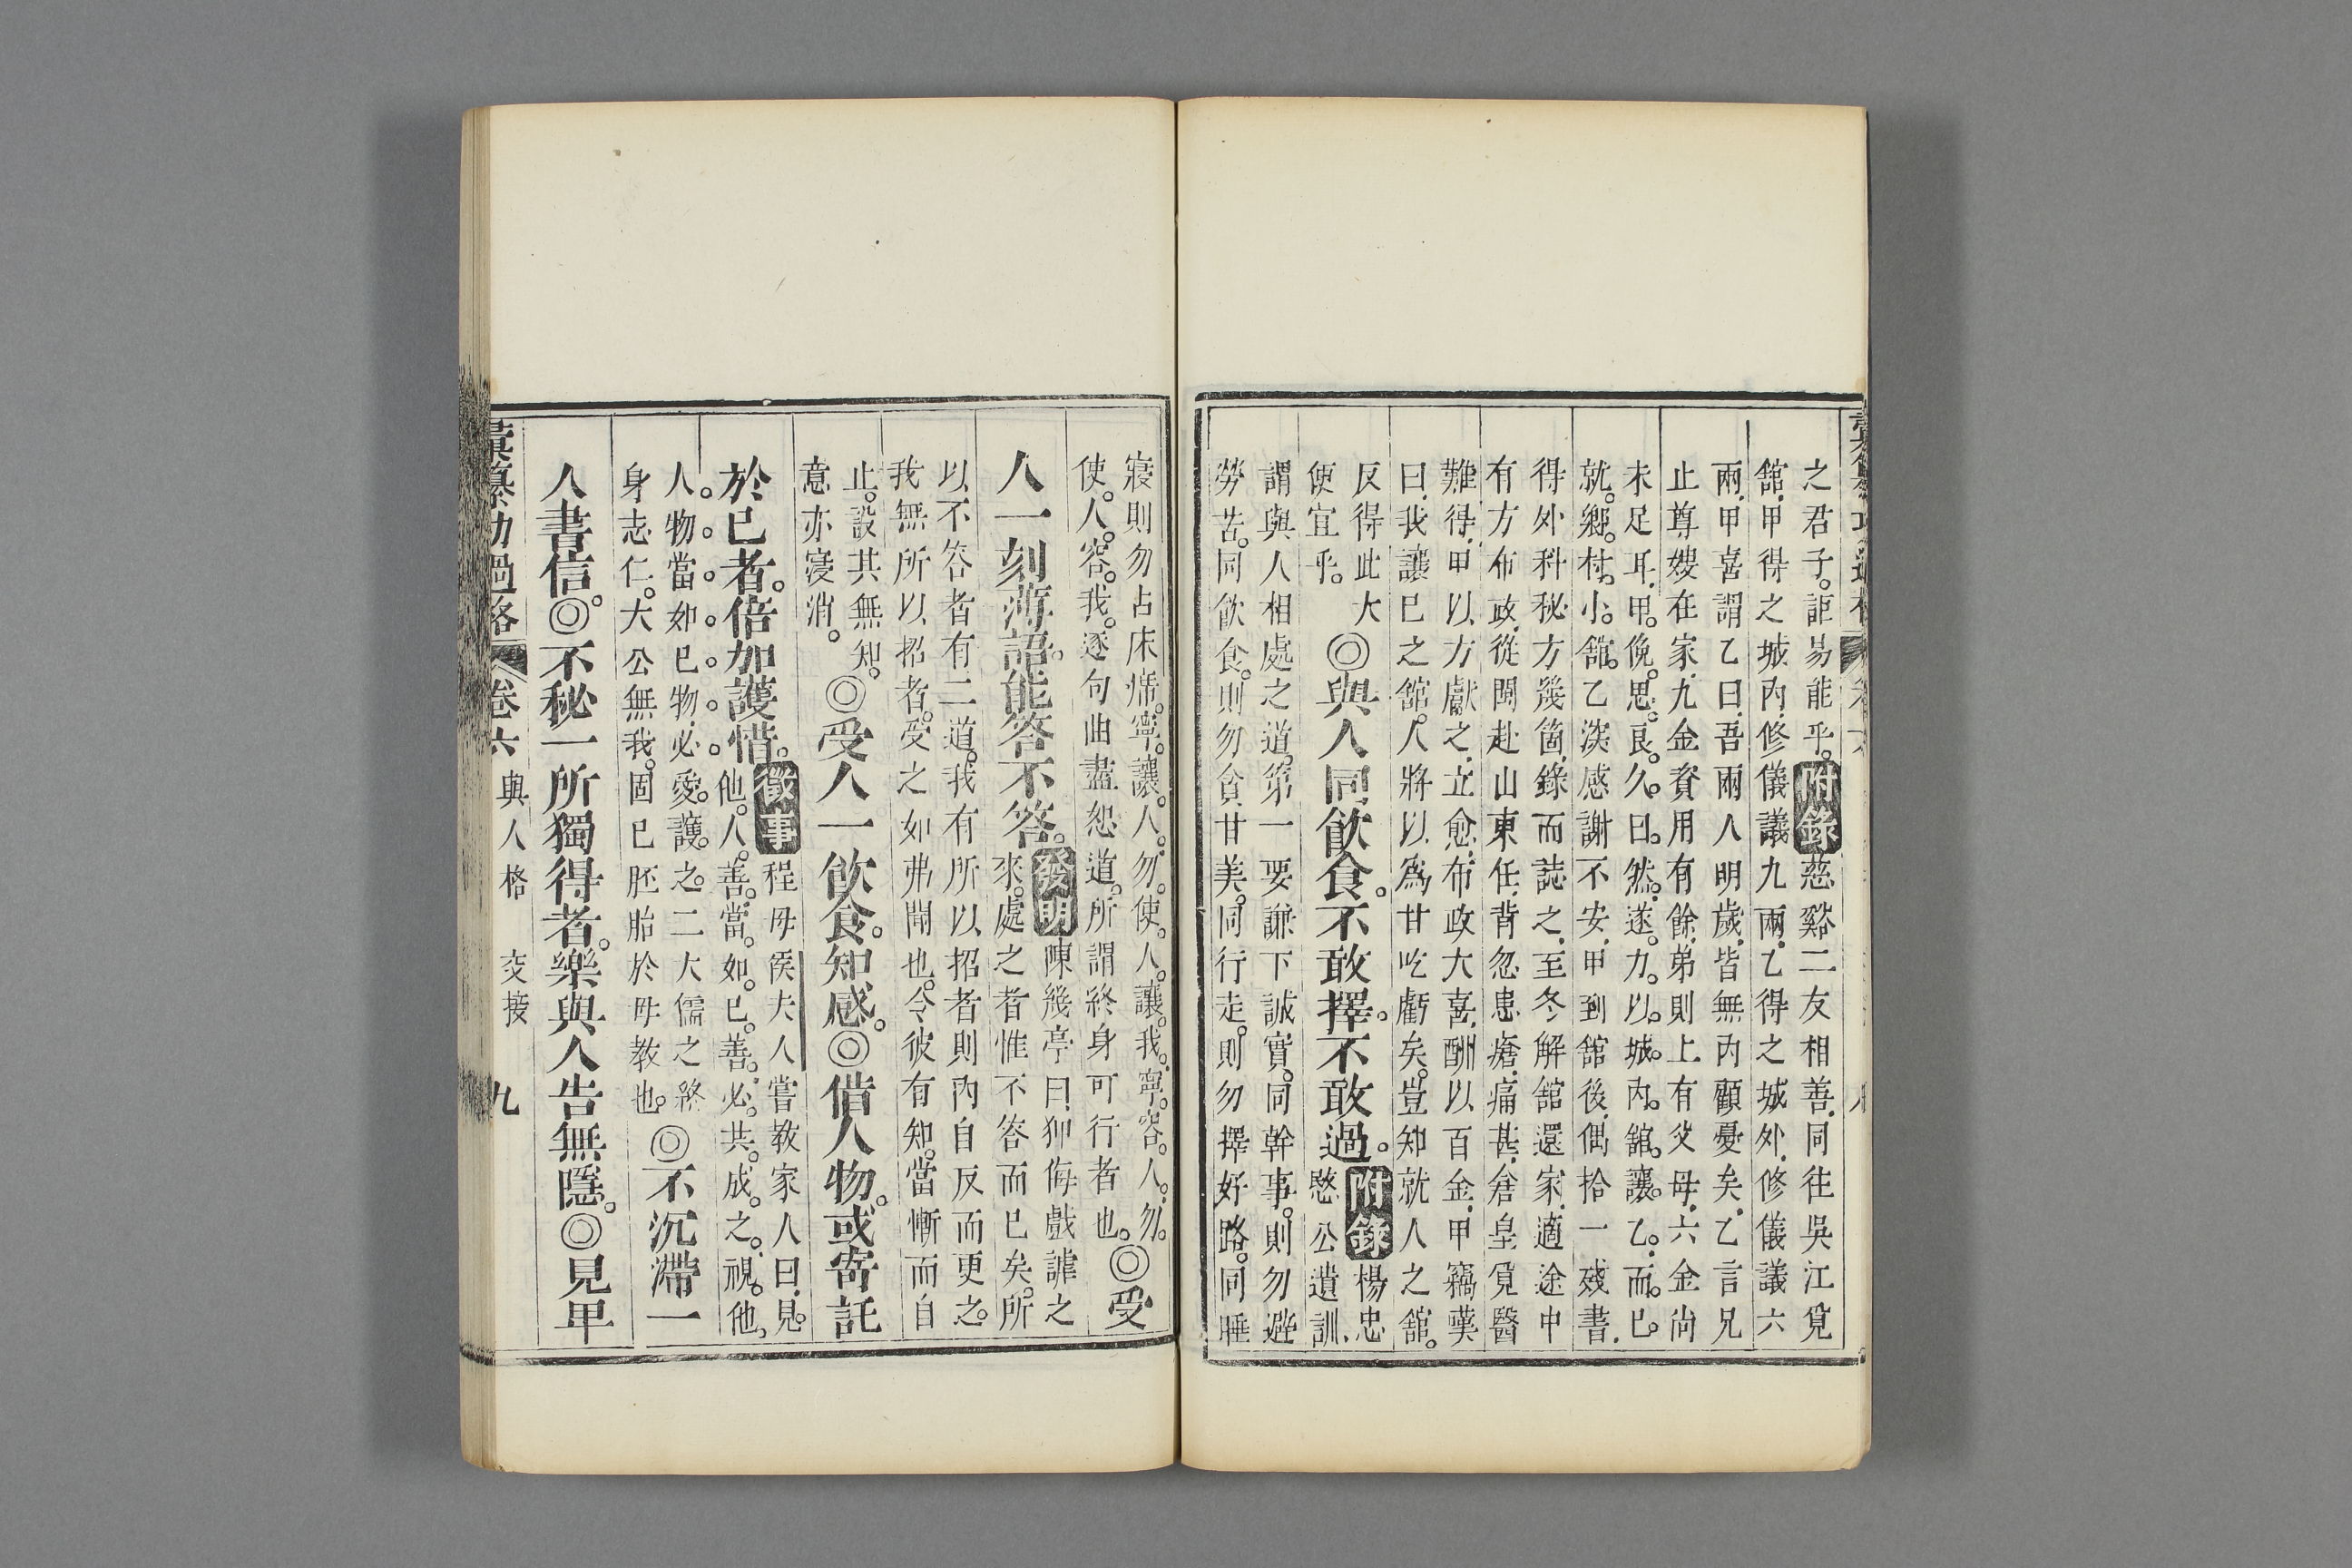 之君子。詎易能乎。附錄慈谿二友相善。同往吳江覓
舘。甲得之城內。修儀議九兩。乙得之城外。修儀議六
兩。甲喜謂乙曰。吾兩人明歲。皆無內顧憂矣。乙言兄
止尊嫂在家。九金資用有餘。弟則上有父母。六金尚
未足耳。甲。俛。思。良。久。曰。然。遂。力。以。城。內。舘。讓。乙。而。己。
就。鄉。村。小。舘。乙深感謝不安。甲到舘後。偶拾一殘書。
得外科秘方幾箇。錄而誌之。至冬解舘還家。適途中
有方布政。從閩赴山東任。背忽患瘡。痛甚。倉皇覓醫
難得。甲以方獻之。立愈。布政大喜。酬以百金。甲竊嘆
曰。我讓己之舘。人將以為甘吃虧矣。豈知就人之舘。
反得此大
便宜乎。
◎與人同飲食。不敢擇。不敢過。附錄楊忠
愍公遺訓。
謂與人相處之道。第一要謙下誠實。同幹事。則勿避
勞苦。同飲食。則勿貪甘美。同行走。則勿擇好路。同睡
寢則勿占床席。寧。讓。人。勿。使。人。讓。我。寧。容。人。勿。
使。人。容。我。逐句曲盡恕道。所謂終身可行者也。◎受
人一刻薄語。能答不答。發明陳幾亭曰。狎侮戲謔之
來。處之者惟不答而已矣。所
以不答者有二道。我有所以招者。則內自反而更之。
我無所以招者。受之如弗聞也。令彼有知。當慚而自
止。設其無知。
意亦寖消。
◎受人一飲食。知感。◎借人物。或寄託
於己者。倍加護惜。徵事程母侯夫人嘗教家人曰。見。
他。人。善。當。如。己。善。必。共。成。之。視。他。
人。物。當。如。己。物。必。愛。護。之。二大儒之終
身志仁。大公無我。固已胚胎於母教也。◎不沉滯一
人書信。◎不秘一所獨得者。樂與人告無隱。◎見甲
彙纂功過格 卷六 與人格 交接 九